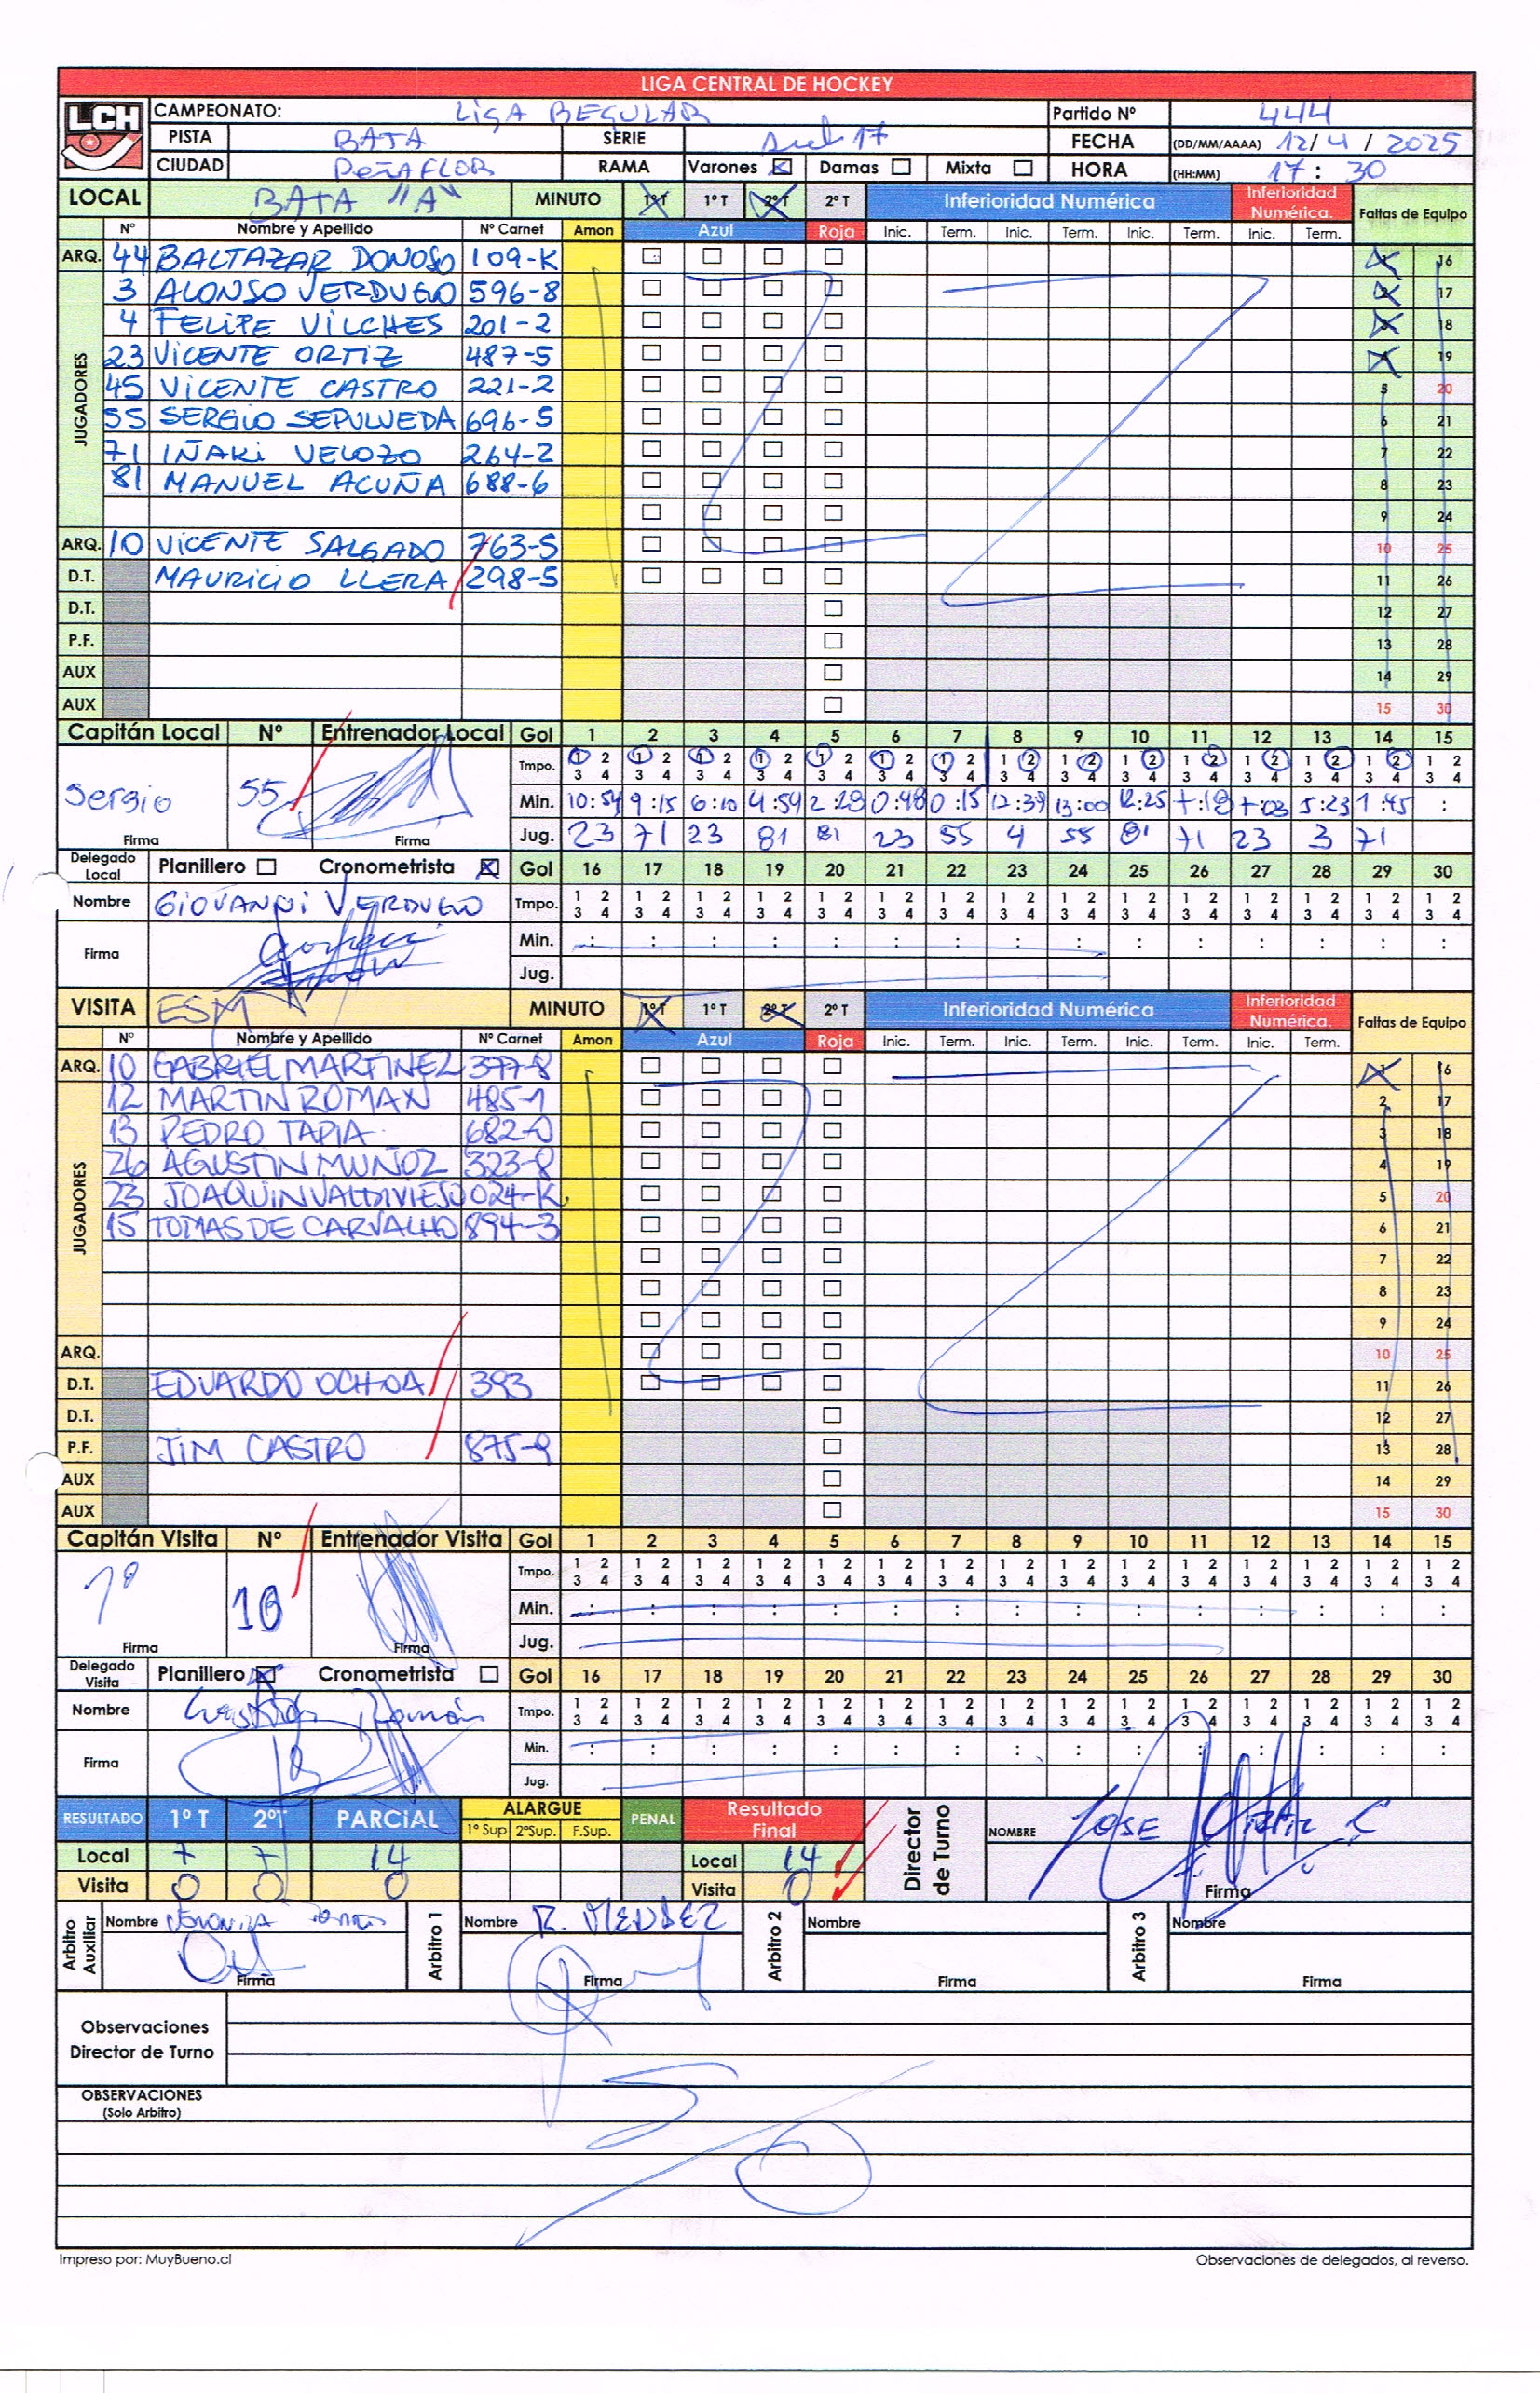 LIGA CENTRAL DE HOCKEY
LCH
CAMPEONATO: LIGA REGULAR Partido Nº 444
PISTA BATA SERIE Sub 17 FECHA (DD/MM/AAAA) 12/4/2025
CIUDAD PEÑAFLOR RAMA Varones Damas Mixta HORA (HH:MM) 17:30
LOCAL BATA "A" MINUTO 1º T 1º T 2º T 2º T Inferioridad Numérica Inferioridad Numérica. Faltas de Equipo
Nº Nombre y Apellido Nº Carnet Amon Azul Roja Inic. Term. Inic. Term. Inic. Term. Inic. Term.
ARQ. 44 BALTAZAR DONOSO 109-K 1 16
JUGADORES
3 ALONSO VERDUGO 596-8 2 17
4 FELIPE VILCHES 201-2 3 18
23 VICENTE ORTIZ 487-5 4 19
45 VICENTE CASTRO 221-2 5 20
55 SERGIO SEPULVEDA 696-5 6 21
71 IÑAKI VELOZO 264-2 7 22
81 MANUEL ACUÑA 688-6 8 23
9 24
ARQ. 10 VICENTE SALGADO 763-5 10 25
D.T. MAURICIO LLERA 298-5 11 26
D.T. 12 27
P.F. 13 28
AUX 14 29
AUX 15 30
Capitán Local Nº Entrenador Local Gol 1 2 3 4 5 6 7 8 9 10 11 12 13 14 15
Tmpo. 1 2 1 2 1 2 1 2 1 2 1 2 1 2 1 2 1 2 1 2 1 2 1 2 1 2 1 2 1 2
3 4 3 4 3 4 3 4 3 4 3 4 3 4 3 4 3 4 3 4 3 4 3 4 3 4 3 4 3 4
Sergio 55 Min. 10:54 9:15 6:10 4:59 2:28 0:48 0:15 12:39 13:00 12:25 7:18 7:03 5:23 1:45 :
Firma Firma Jug. 23 71 23 81 81 23 55 4 55 81 71 23 3 71
Delegado Local Planillero Cronometrista Gol 16 17 18 19 20 21 22 23 24 25 26 27 28 29 30
Nombre GIOVANNI VERDUGO Tmpo. 1 2 1 2 1 2 1 2 1 2 1 2 1 2 1 2 1 2 1 2 1 2 1 2 1 2 1 2 1 2
3 4 3 4 3 4 3 4 3 4 3 4 3 4 3 4 3 4 3 4 3 4 3 4 3 4 3 4 3 4
Firma Min. : : : : : : : : : : : : : : :
Jug.
VISITA ESM MINUTO 1º T 1º T 2º T 2º T Inferioridad Numérica Inferioridad Numérica. Faltas de Equipo
Nº Nombre y Apellido Nº Carnet Amon Azul Roja Inic. Term. Inic. Term. Inic. Term. Inic. Term.
ARQ. 10 GABRIEL MARTINEZ 377-8 1 16
JUGADORES
12 MARTIN ROMAN 485-1 2 17
13 PEDRO TAPIA 682-0 3 18
26 AGUSTIN MUÑOZ 323-8 4 19
23 JOAQUIN VALDIVIESO 024-K 5 20
15 TOMAS DE CARVALHO 894-3 6 21
7 22
8 23
9 24
ARQ. 10 25
D.T. EDUARDO OCHOA 393 11 26
D.T. 12 27
P.F. JIM CASTRO 875-9 13 28
AUX 14 29
AUX 15 30
Capitán Visita Nº Entrenador Visita Gol 1 2 3 4 5 6 7 8 9 10 11 12 13 14 15
Tmpo. 1 2 1 2 1 2 1 2 1 2 1 2 1 2 1 2 1 2 1 2 1 2 1 2 1 2 1 2 1 2
3 4 3 4 3 4 3 4 3 4 3 4 3 4 3 4 3 4 3 4 3 4 3 4 3 4 3 4 3 4
10 Min. : : : : : : : : : : : : : : :
Firma Firma Jug.
Delegado Visita Planillero Cronometrista Gol 16 17 18 19 20 21 22 23 24 25 26 27 28 29 30
Nombre Román Tmpo. 1 2 1 2 1 2 1 2 1 2 1 2 1 2 1 2 1 2 1 2 1 2 1 2 1 2 1 2 1 2
3 4 3 4 3 4 3 4 3 4 3 4 3 4 3 4 3 4 3 4 3 4 3 4 3 4 3 4 3 4
Firma Min. : : : : : : : : : : : : : : :
Jug.
RESULTADO 1º T 2º T PARCIAL ALARGUE PENAL Resultado Final Director de Turno NOMBRE JOSE
1º Sup 2ºSup. F.Sup.
Local 7 7 14 Local 14
Visita 0 0 0 Visita 0 Firma
Arbitro Auxiliar Nombre Arbitro 1 Nombre R. MENDEZ Arbitro 2 Nombre Arbitro 3 Nombre
Firma Firma Firma Firma
Observaciones Director de Turno
OBSERVACIONES
(Solo Arbitro)
Impreso por: MuyBueno.cl Observaciones de delegados, al reverso.